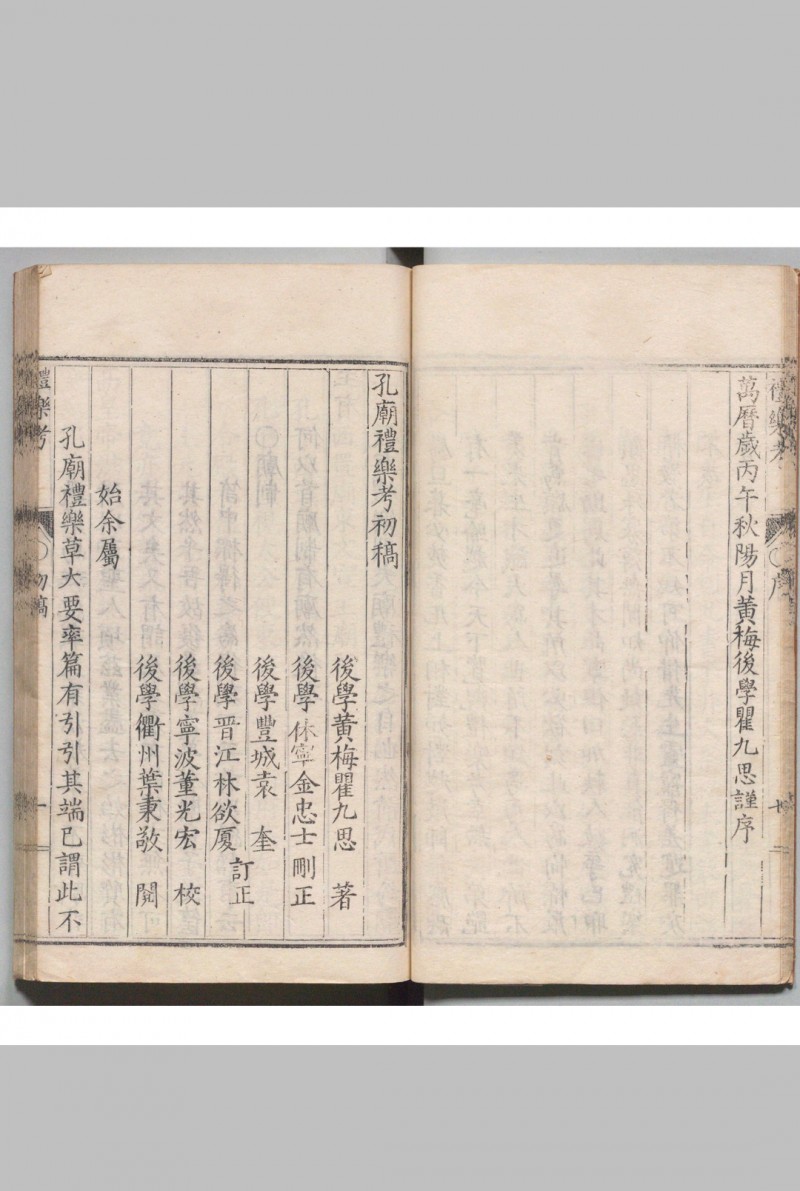 禮樂考 〇序 十
萬曆歲丙午秋陽月黃梅後學瞿九思謹序
孔廟禮樂考初稿
後學黃梅瞿九思 著
後學休寧金忠士刪正
後學豐城袁 奎
後學晉江林欲厦
訂正
後學寧波董光宏 校
後學衢州葉秉敬 閱
始余屬
孔廟禮樂草大要率篇有引引其端已謂此不
禮樂考 〇初稿 一